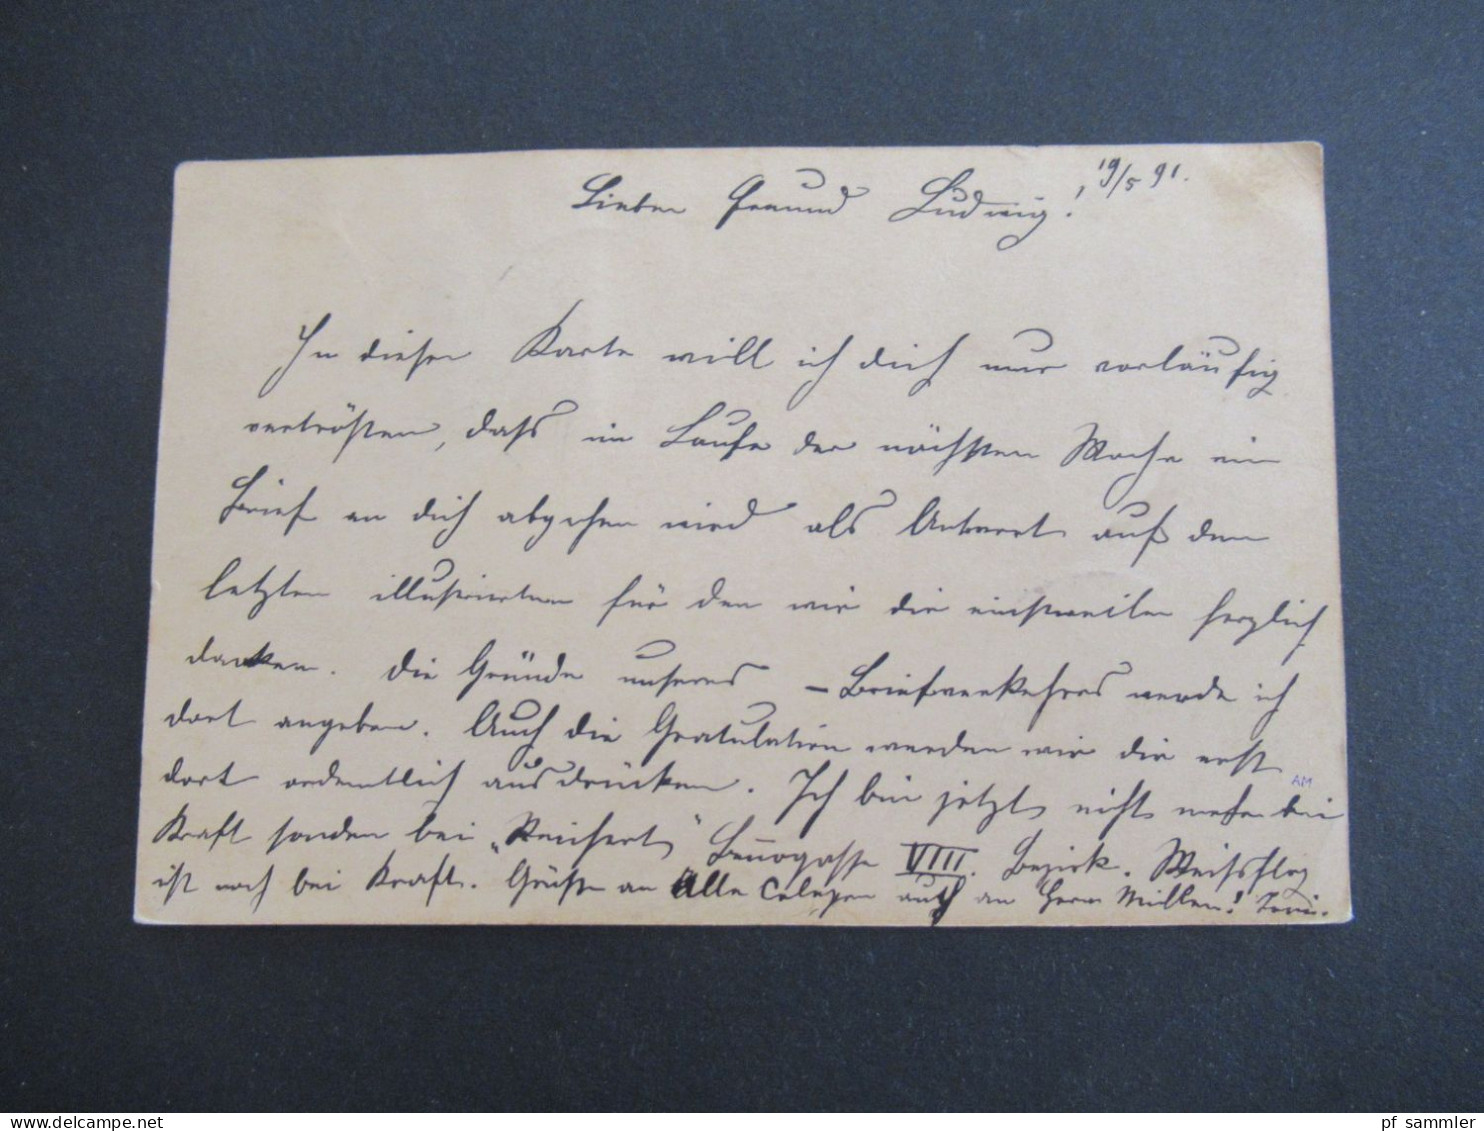 19/5 91.
Lieber Freund Ludwig!
In dieser Karte will ich dich nur vorläufig
vertrösten, daß im Laufe der nächsten Woche ein
Brief an dich abgehen wird als Antwort auf den
letzten illustrierten für den wir dir einstweilen herzlich
danken. Die Gründe unseres – Briefverkehres werde ich
dort angeben. Auch die Gratulation werden wir dir erst
dort ordentlich ausdrücken. Ich bin jetzt nicht mehr bei
AM
Kraft sondern bei „Reichert“ Bennogasse VIII. Bezirk. Weißflog
ist noch bei Kraft. Grüße an Alle Colegen auch an Herrn Müller! Toni.
pf sammler
www.delcampe.net